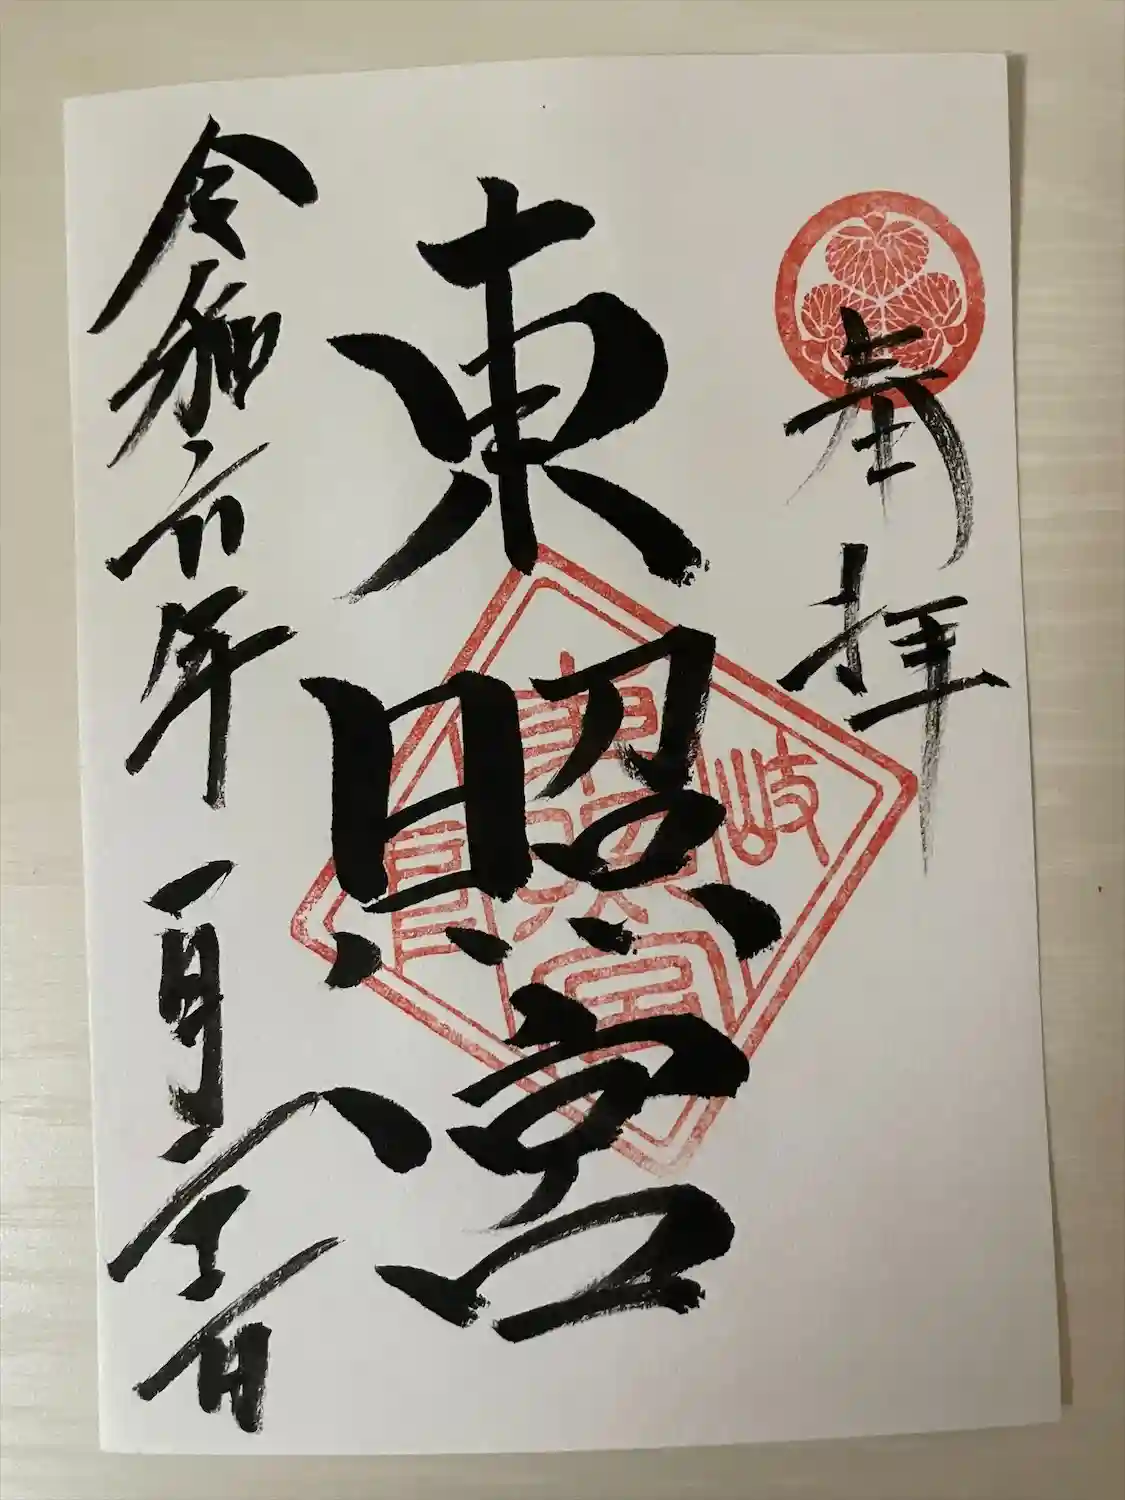 奉拝
東照宮
岐
東照宮
阜
令和六年一月